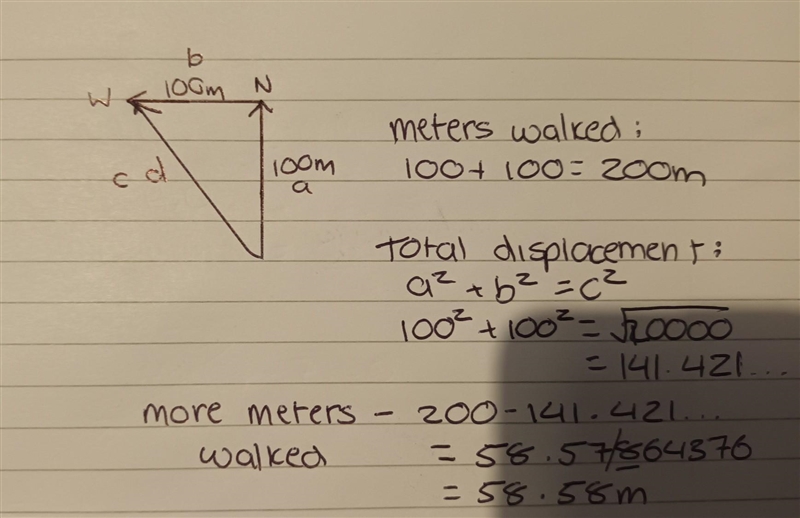 b
W 100m N
c d 100m
a
meters walked:
100 + 100 = 200m
total displacement:
a² + b² = c²
100² + 100² = √20000
= 141.421...
more meters - 200 - 141.421...
walked = 58.57/864376
= 58.58m